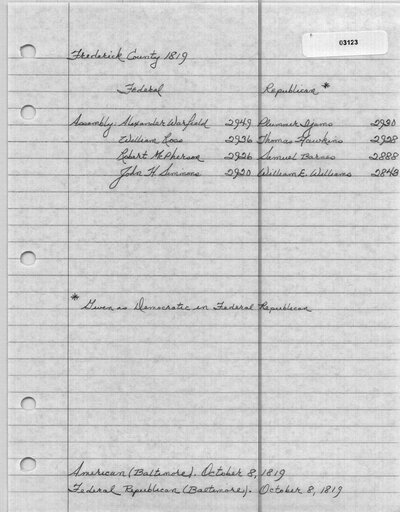 03123
Frederick County 1819
Federal Republican*
Assembly: Alexander Warfield 2949 Plummer Ijams 2930
William Ross 2936 Thomas Hawkins 2928
Robert McPherson 2926 Samuel Barnes 2888
John H. Simmons 2920 William E. Williams 2843
* Given as Democratic in Federal Republican
American (Baltimore). October 8, 1819
Federal Republican (Baltimore). October 8, 1819